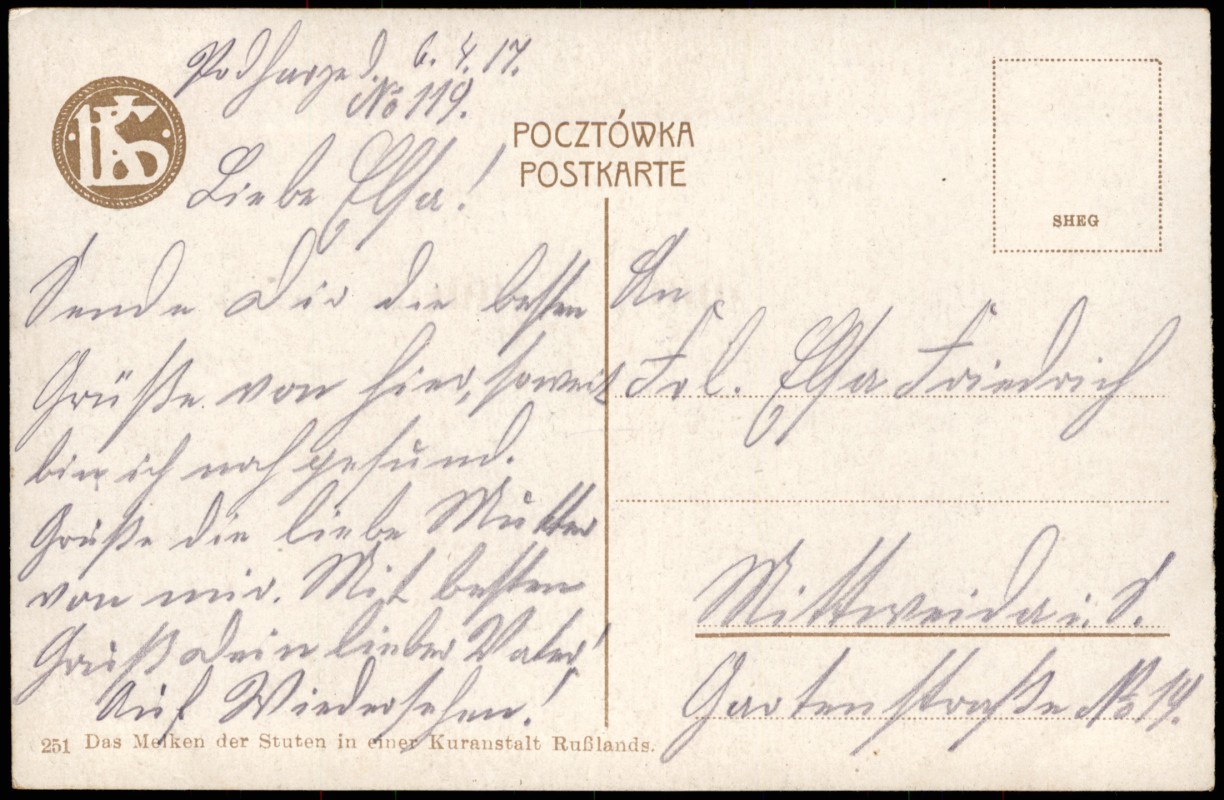 Podharze d. 6. 4. 17.
No 119.
POCZTÓWKA
POSTKARTE
SHEG
Liebe Elsa!
Sende Dir die besten
Grüße von hier, soweit
bin ich noch gesund.
Grüße die liebe Mutter
von mir. Mit besten
Gruß Dein lieber Vater!
Auf Wiedersehen!
An
Frl. Elsa Friedrich
Mittweida i. S.
Gartenstraße No 14.
251 Das Melken der Stuten in einer Kuranstalt Rußlands.